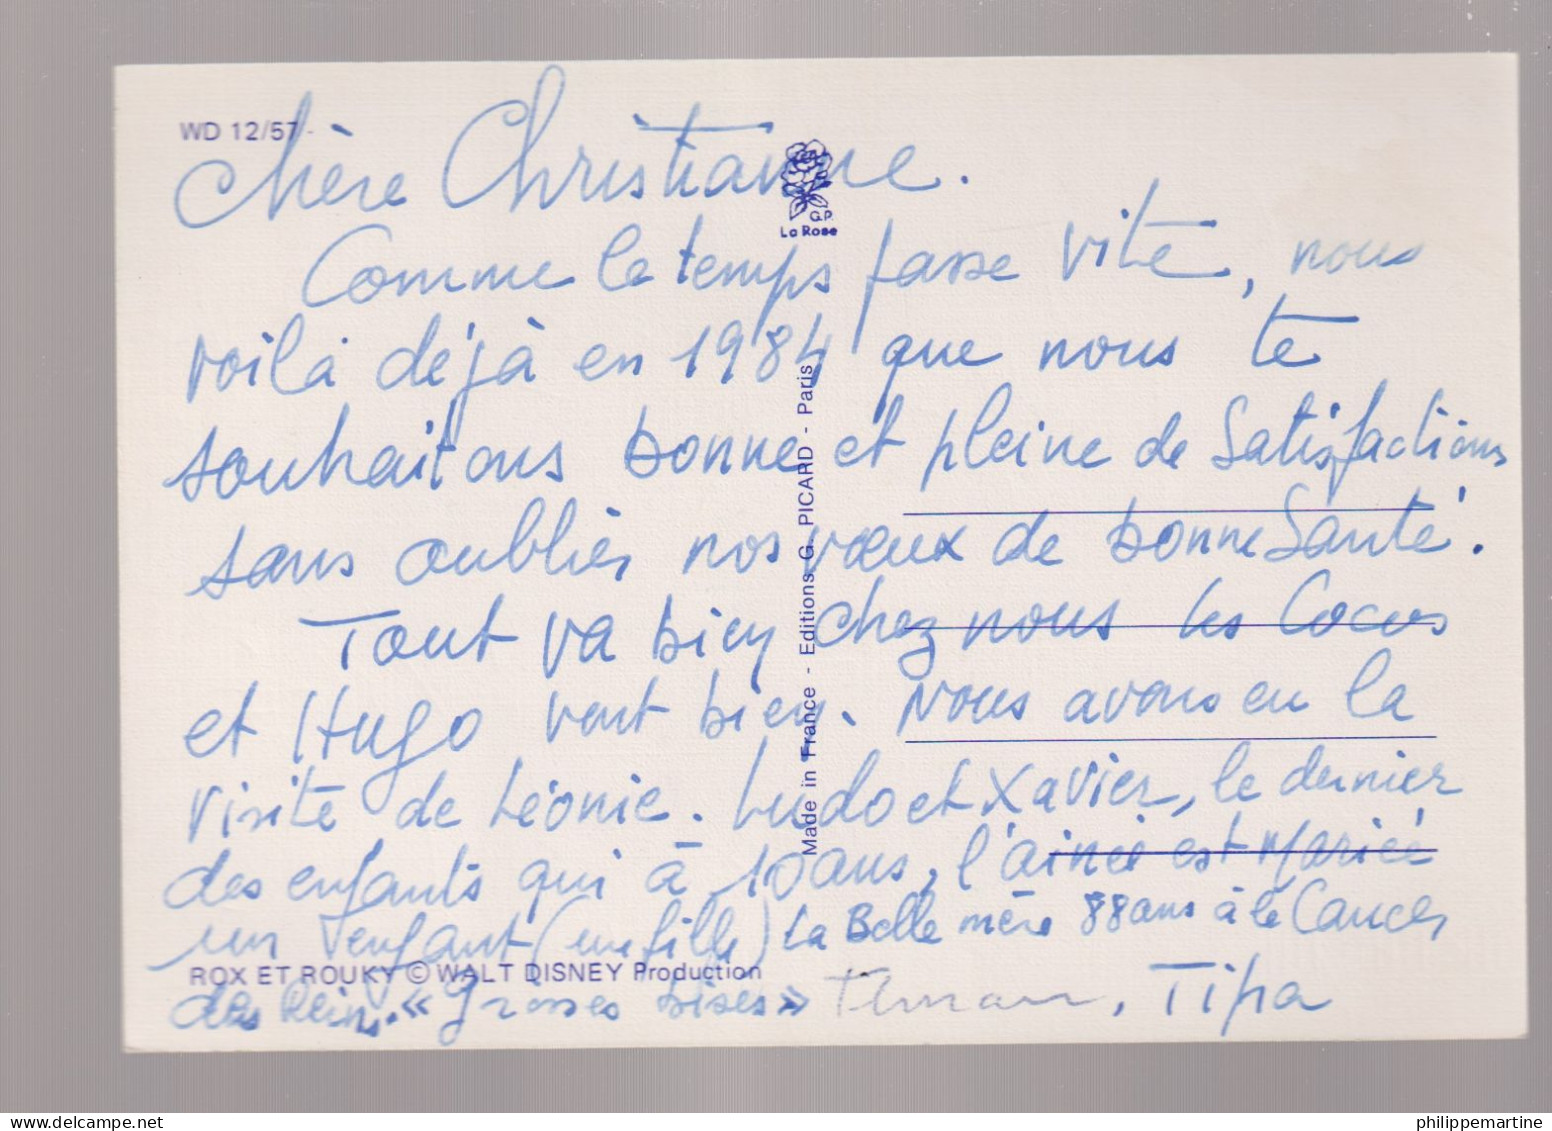 WD 12/57
Chère Christianne.
G.P.
La Rose
Comme le temps passe vite, nous
voilà déjà en 1984 que nous te
souhaitons bonne et pleine de satisfactions
sans oublier nos vœux de bonne Santé.
Tout va bien chez nous les Cocos
et Hugo vont bien. Nous avons eu la
visite de Léonie. Ludo et Xavier, le dernier
des enfants qui à 10 ans, l'ainée est Mariée
un enfant (une fille) La Belle mère 88 ans à le Cancer
des Reins. « Grosses bises » Tipa
ROX ET ROUKY © WALT DISNEY Production
Made in France - Editions G. PICARD - Paris
philippemartine